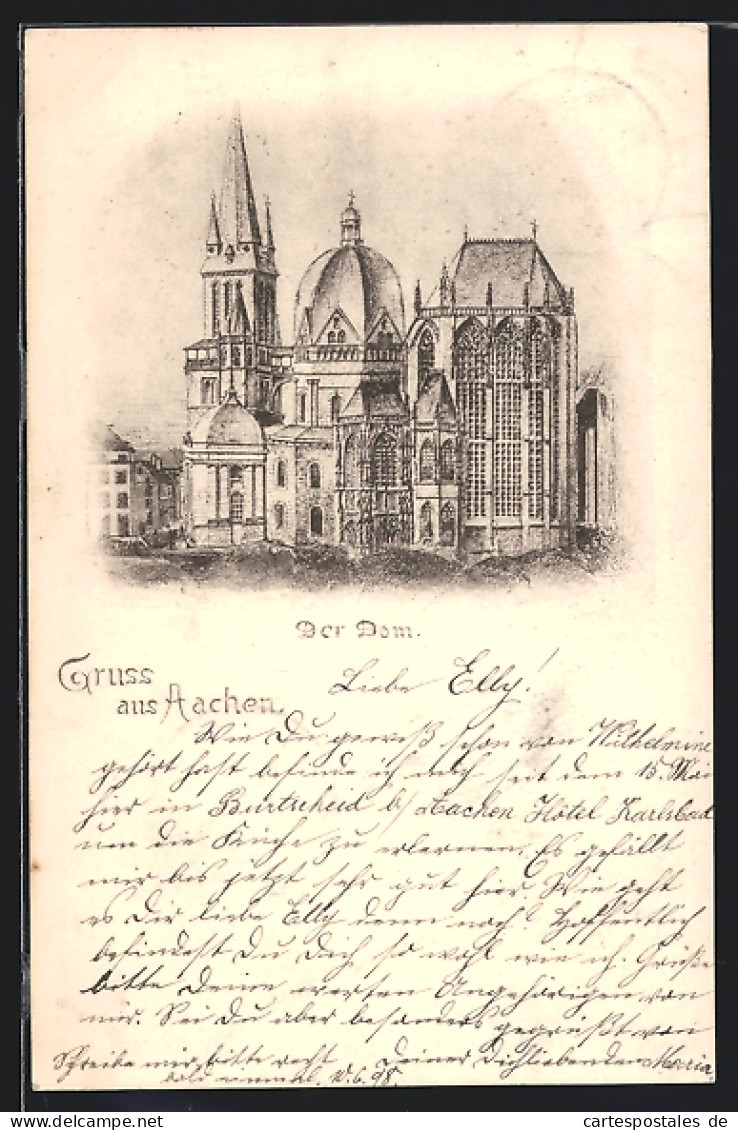 Der Dom.
Gruss
aus Aachen.
Liebe Elly!
Wie Du gewiß schon von Wilhelmine
gehört hast befinde ich mich seit dem 15. Mai
hier in Burtscheid b/ Aachen Hôtel Karlsbad
um die Küche zu erlernen. Es gefällt
mir bis jetzt sehr gut hier. Wie geht
es Dir liebe Elly denn noch? Hoffentlich
befindest Du Dich so wohl wie ich. Grüße
bitte Deine werten Angehörigen von
mir. Sei Du aber besonders gegrüßt von
Schreibe mir bitte recht Deiner Dichliebenden Maria
bald einmal. 10.6.98.
www.delcampe.net
cartespostales de